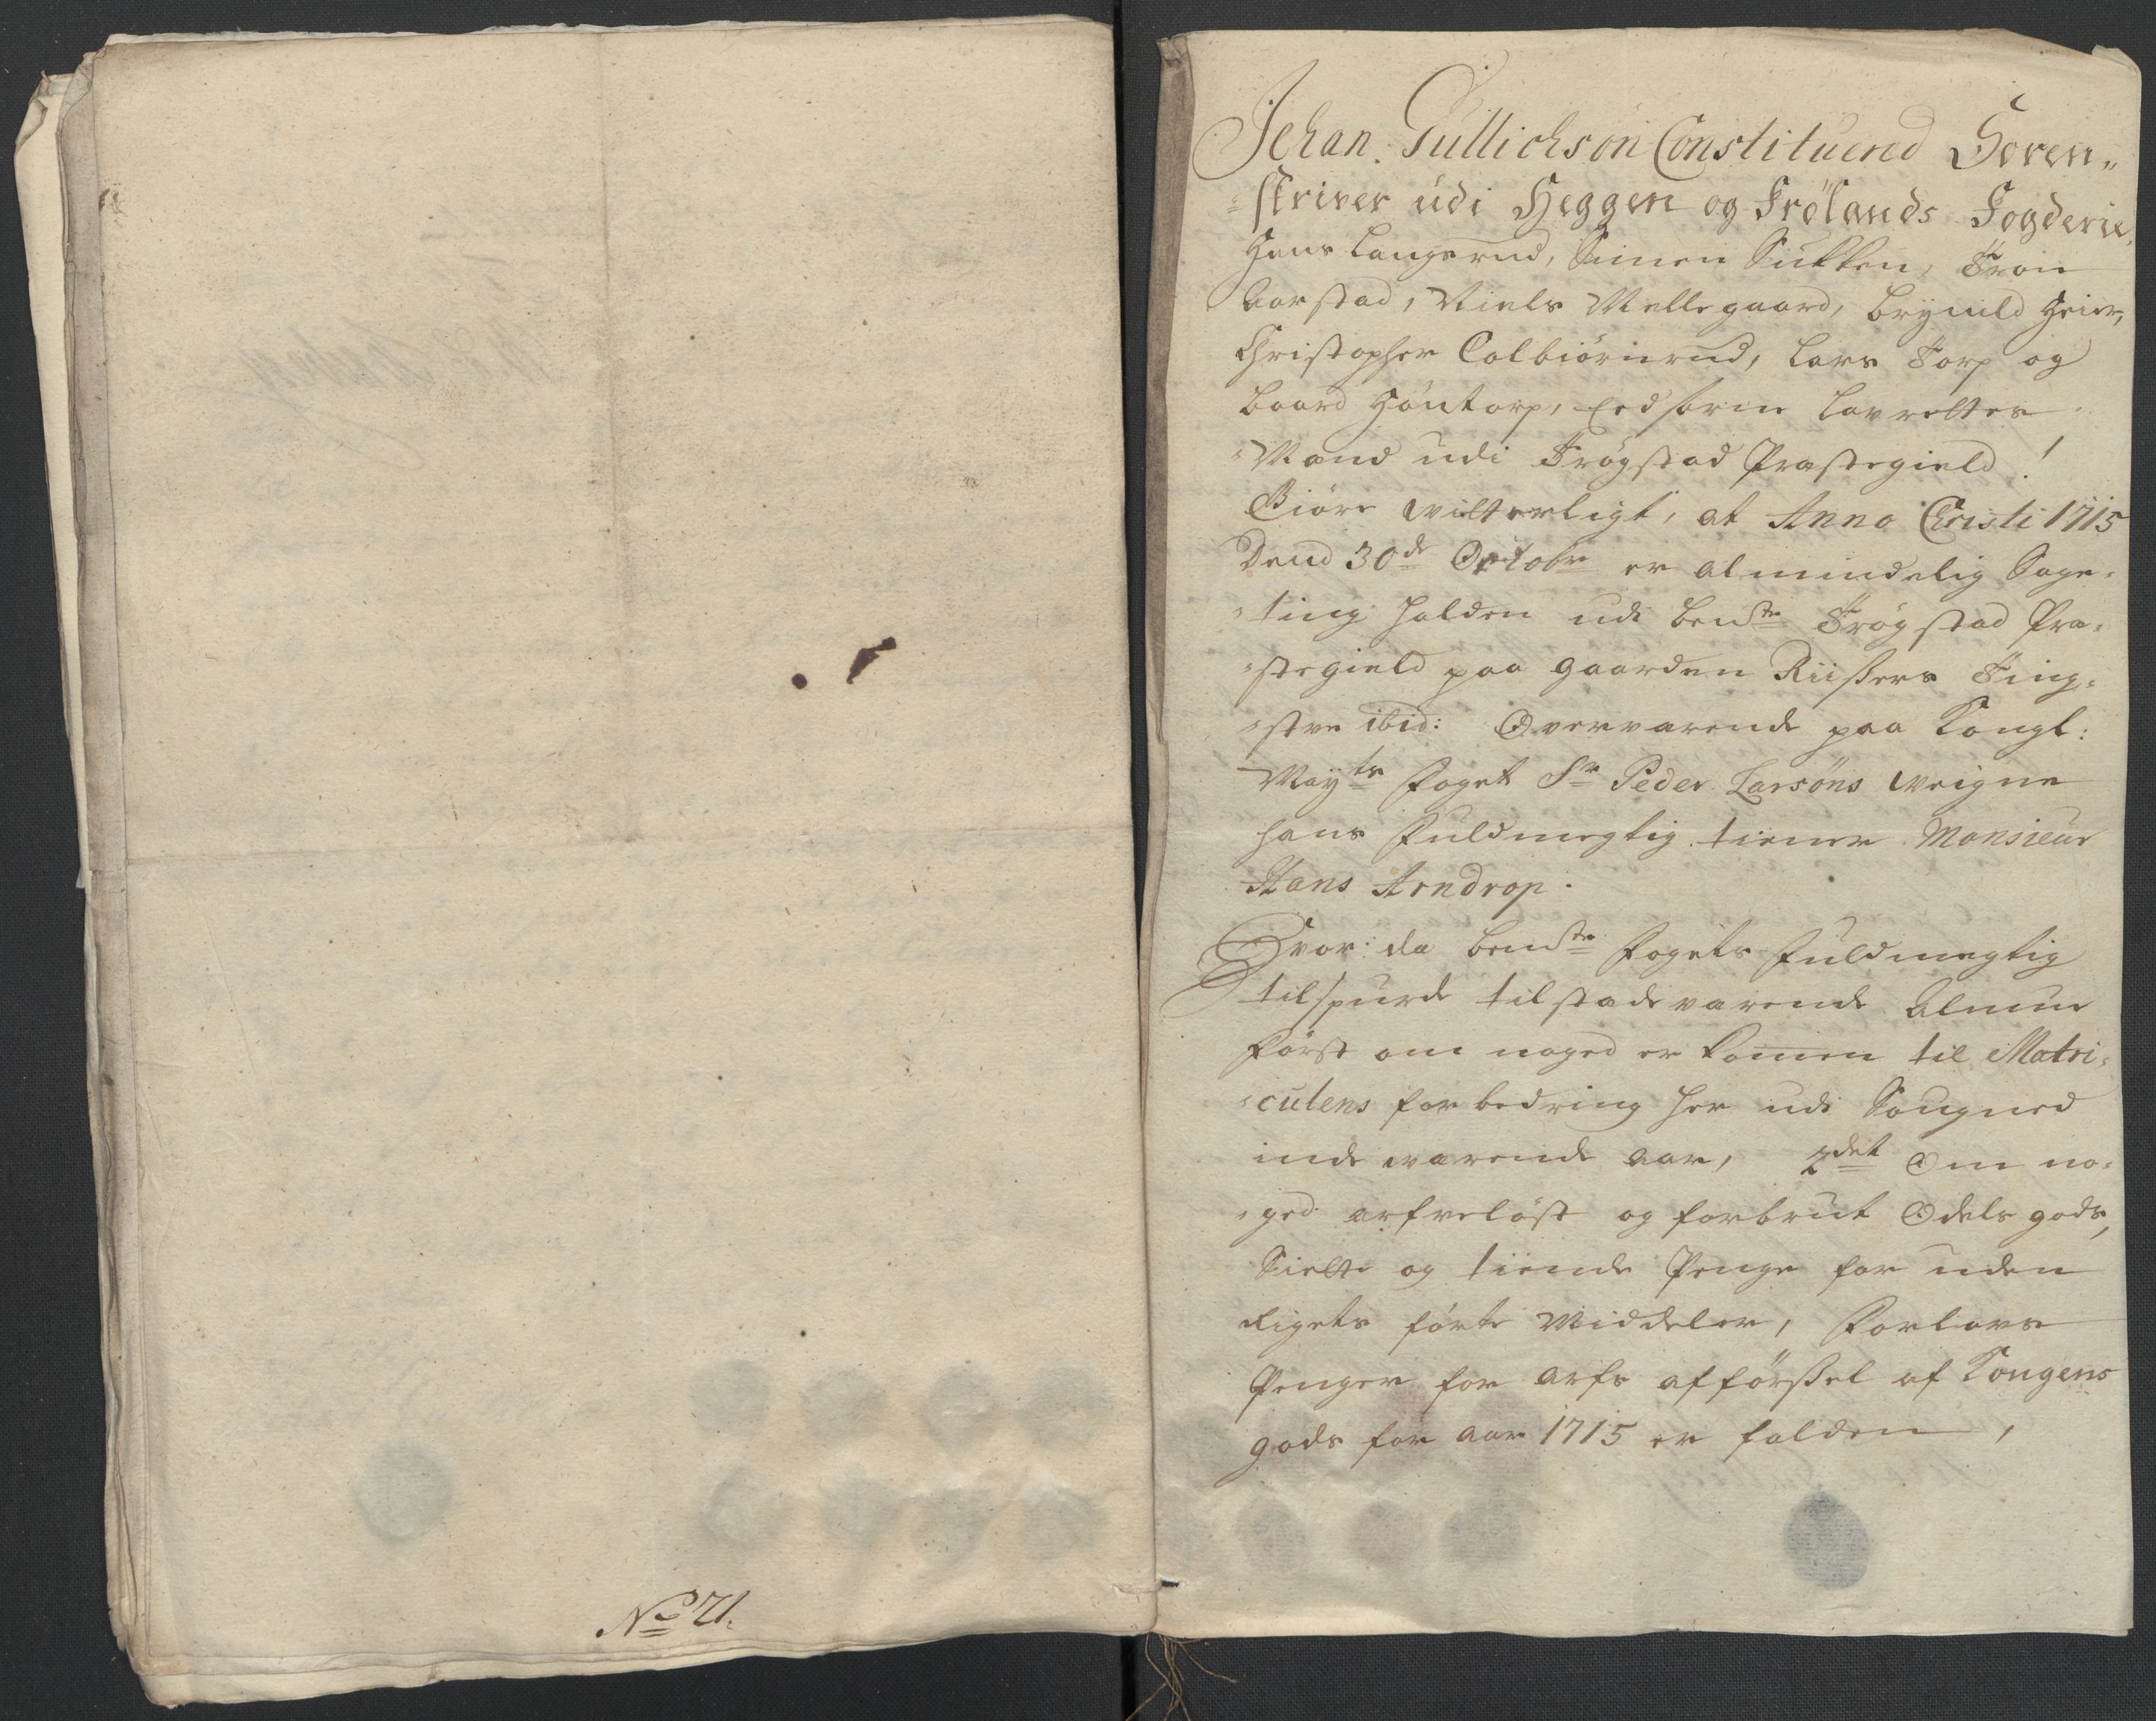 No 21.
Johan Gullichsøn Constituerid Soren„
„skriver udi Heggen og Frølands Fogderie,
Hans Langerud, Simen Sukken, Tron
Aarstad, Niels Mellegaard, Brynild Heier,
Christopher Colbiørnrud, Lars Torp og
Baard Høntorp, Eedsorne Lavrettes
Mænd udi Trøgstad Præstegield!
Giøre witterligt, at Anno Christi 1715
Dend 30de Octobr er almindelig Sage-
-ting holden udi bemte Trøgstad Præ-
-stegield paa gaarden Riisers Ting-
-stue ibid: Overværende paa Kongl:
Mayts foget Sr Peder Larsøns weigne
hans fuldmegtig tiener Monsieur
Hans Arndrop.
Hvor da bemte fogets fuldmegtig
tilspurde tilstædeværende Almue
først om noged er kommen til Matri-
-culens forbedring her udi Sougned
indeværende aar, 2det Om no-
-ged arfveløst og forbrut Odels gods,
Siette og tiende Penge for uden
Rigets førte Middeler, Forlovs
Penger for arfs afførßel af Kongens
gods for aar 1715 er falden,